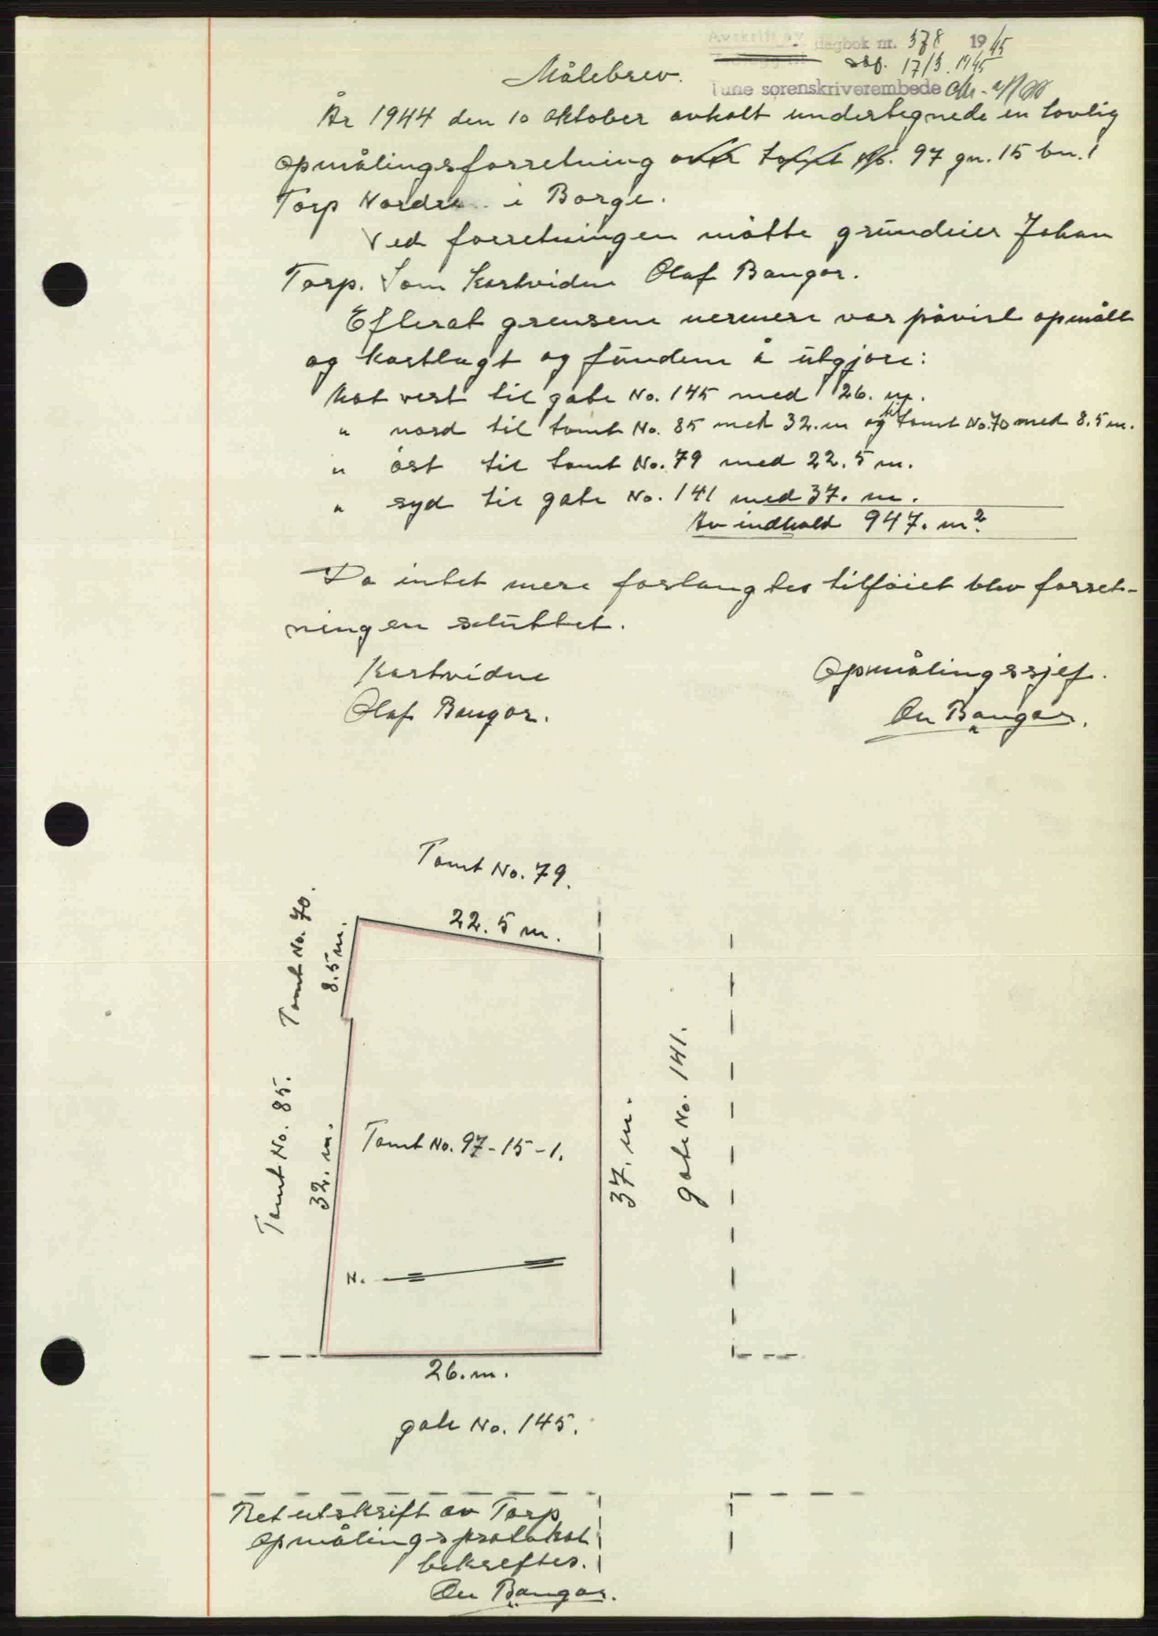 Avskrift av dagbok nr. 378 1945
17/3. 1945
Tune sorenskriverembede
Målebrev.
År 1944 den 10 Oktober avholt undertegnede en lovlig
opmålingsforretning over tomt No. 97 gn. 15 bn. 1
Torp Nordre i Borge.
Ved forretningen møtte grundeier Johan
Torp. Som Kartvidne Olaf Bangor.
Efterat grensene nermere var påvist opmålt
og kartlagt og fundene å utgjøre:
Mot vest til gate No. 145 med 26. m.
" nord til tomt No. 85 med 32. m og til tomt No. 70 med 8.5 m.
" øst til tomt No. 79 med 22.5 m.
" syd til gate No. 141 med 37. m.
Av indhold 947. m²
Da intet mere forlangtes tilføiet blev forret-
ningen sluttet.
Kartvidne
Olaf Bangor.
Opmålingssjef.
On Bangor.
Tomt No. 79.
22.5 m.
Tomt No. 70.
8.5 m.
Tomt No. 85.
32. m.
Tomt No. 97-15-1.
37. m.
gate No. 141.
N.
26. m.
gate No. 145.
Ret utskrift av Torp
Opmålingsprotokol
bekreftes.
On Bangor.